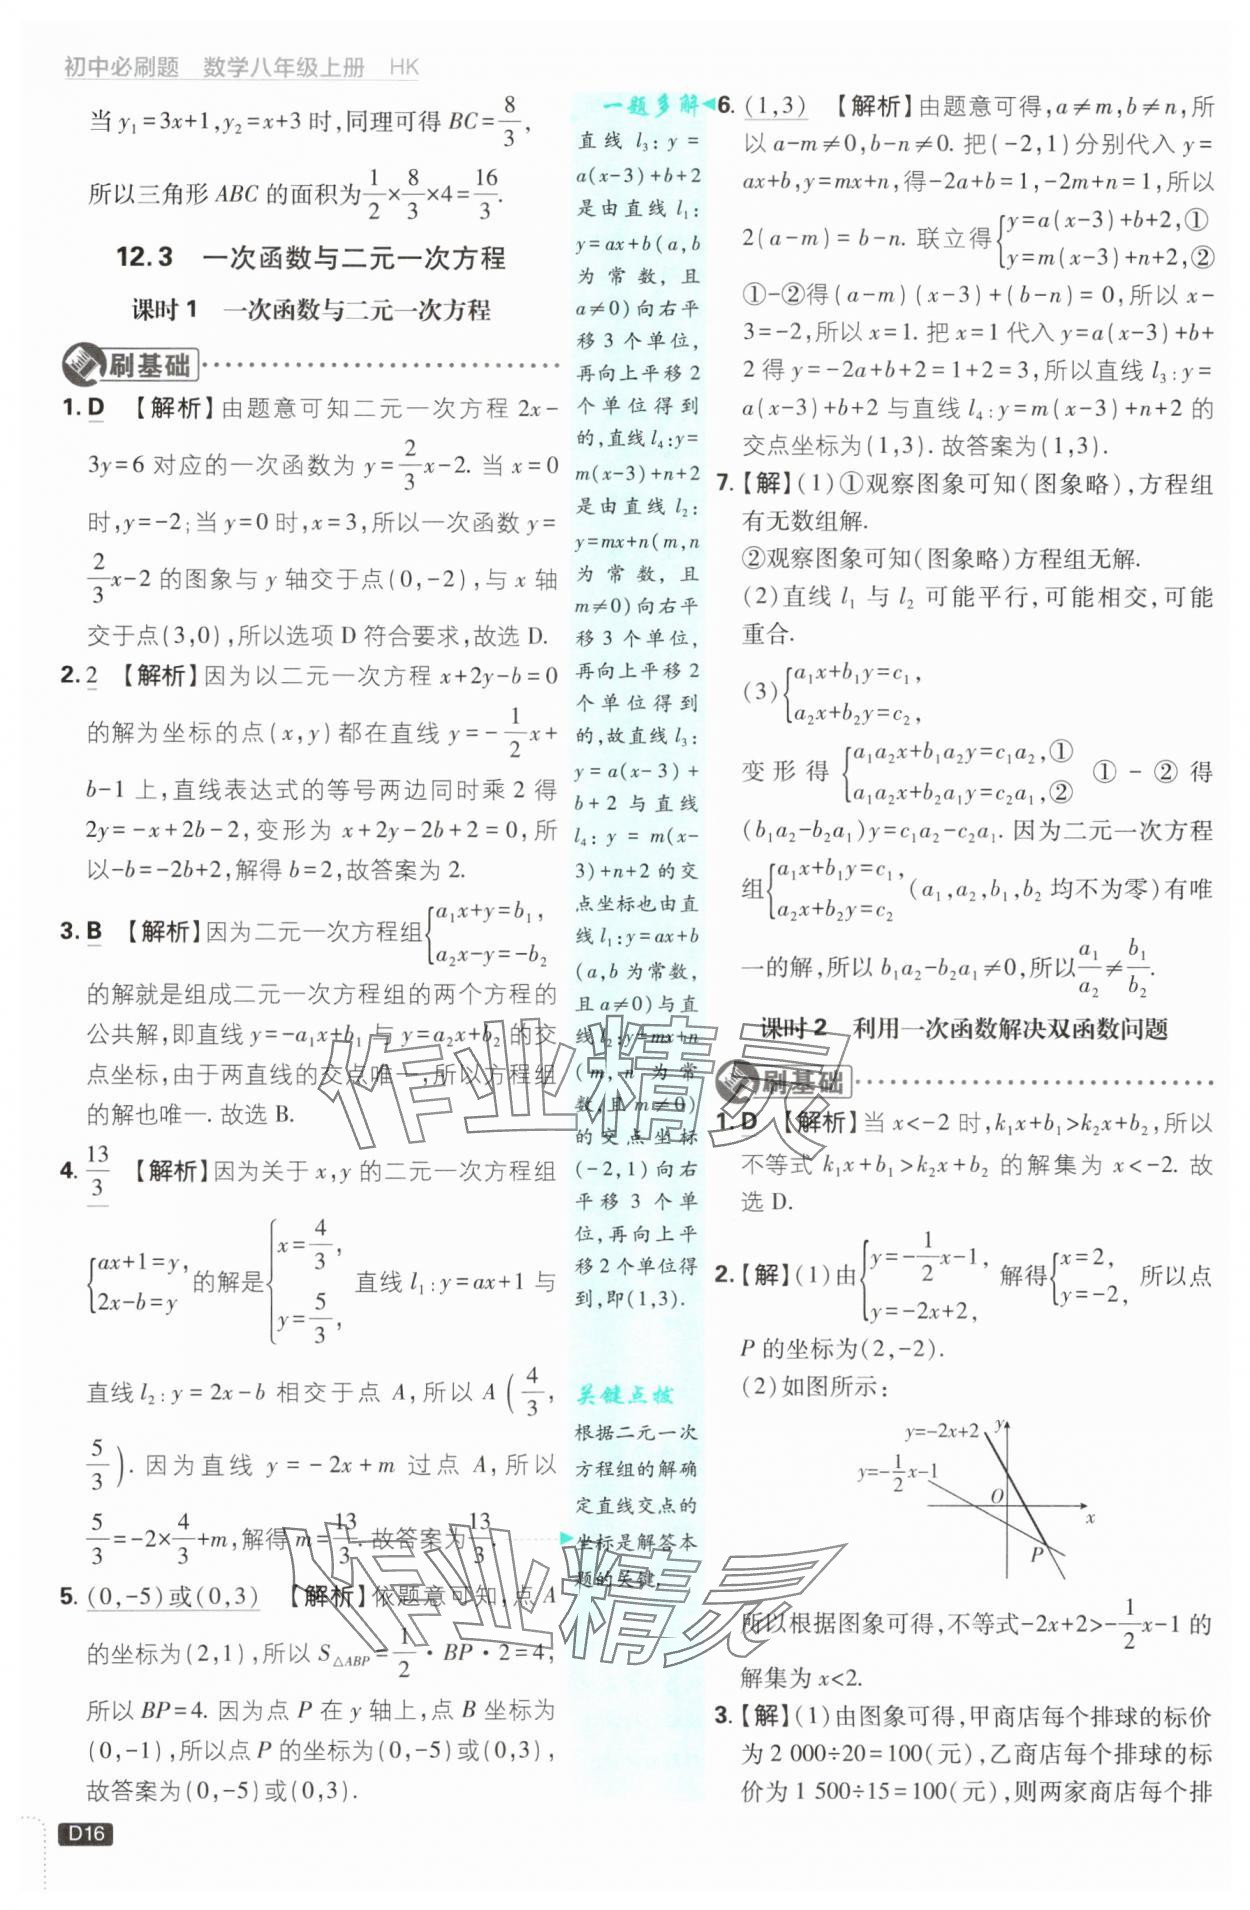 初中必刷题　数学八年级上册　HK
当 y₁=3x+1,y₂=x+3 时,同理可得 BC=8/3,
所以三角形 ABC 的面积为 1/2×8/3×4=16/3.
12.3　一次函数与二元一次方程
课时1　一次函数与二元一次方程
刷基础
1. D 【解析】由题意可知二元一次方程 2x-
3y=6 对应的一次函数为 y=2/3x-2. 当 x=0
时,y=-2;当 y=0 时,x=3,所以一次函数 y=
2/3x-2 的图象与 y 轴交于点(0,-2),与 x 轴
交于点(3,0),所以选项 D 符合要求,故选 D.
2. 2 【解析】因为以二元一次方程 x+2y-b=0
的解为坐标的点(x,y)都在直线 y=-1/2x+
b-1 上,直线表达式的等号两边同时乘 2 得
2y=-x+2b-2,变形为 x+2y-2b+2=0,所
以-b=-2b+2,解得 b=2,故答案为 2.
3. B 【解析】因为二元一次方程组{a₁x+y=b₁, a₂x-y=-b₂
的解就是组成二元一次方程组的两个方程的
公共解,即直线 y=-a₁x+b₁ 与 y=a₂x+b₂ 的交
点坐标,由于两直线的交点唯一,所以方程组
的解也唯一. 故选 B.
4. 13/3 【解析】因为关于 x,y 的二元一次方程组
{ax+1=y, 2x-b=y 的解是{x=4/3, y=5/3, 直线 l₁:y=ax+1 与
直线 l₂:y=2x-b 相交于点 A,所以 A(4/3,
5/3). 因为直线 y=-2x+m 过点 A,所以
5/3=-2×4/3+m,解得 m=13/3. 故答案为13/3.
5. (0,-5)或(0,3) 【解析】依题意可知,点 A
的坐标为(2,1),所以 S△ABP=1/2·BP·2=4,
所以 BP=4. 因为点 P 在 y 轴上,点 B 坐标为
(0,-1),所以点 P 的坐标为(0,-5)或(0,3),
故答案为(0,-5)或(0,3).
D16
一题多解
直线 l₃:y=
a(x-3)+b+2
是由直线 l₁:
y=ax+b(a,b
为常数,且
a≠0)向右平
移3个单位,
再向上平移2
个单位得到
的,直线 l₄:y=
m(x-3)+n+2
是由直线 l₂:
y=mx+n(m,n
为常数,且
m≠0)向右平
移3个单位,
再向上平移2
个单位得到
的,故直线 l₃:
y=a(x-3)+
b+2 与直线
l₄:y=m(x-
3)+n+2 的交
点坐标也由直
线 l₁:y=ax+b
(a,b 为常数,
且 a≠0)与直
线 l₂:y=mx+n
(m,n 为常
数,且 m≠0)
的交点坐标
(-2,1)向右
平移3个单
位,再向上平
移2个单位得
到,即(1,3).
关键点拔
根据二元一次
方程组的解确
定直线交点的
坐标是解答本
题的关键.
6. (1,3) 【解析】由题意可得,a≠m,b≠n,所
以 a-m≠0,b-n≠0. 把(-2,1)分别代入 y=
ax+b,y=mx+n,得-2a+b=1,-2m+n=1,所以
2(a-m)=b-n. 联立得{y=a(x-3)+b+2,① y=m(x-3)+n+2,②
①-②得(a-m)(x-3)+(b-n)=0,所以 x-
3=-2,所以 x=1. 把 x=1 代入 y=a(x-3)+b+
2 得 y=-2a+b+2=1+2=3,所以直线 l₃:y=
a(x-3)+b+2 与直线 l₄:y=m(x-3)+n+2 的
交点坐标为(1,3). 故答案为(1,3).
7. 【解】(1)①观察图象可知(图象略),方程组
有无数组解.
②观察图象可知(图象略)方程组无解.
(2)直线 l₁ 与 l₂ 可能平行,可能相交,可能
重合.
(3){a₁x+b₁y=c₁, a₂x+b₂y=c₂,
变形得{a₁a₂x+b₁a₂y=c₁a₂,① a₁a₂x+b₂a₁y=c₂a₁,② ①-②得
(b₁a₂-b₂a₁)y=c₁a₂-c₂a₁. 因为二元一次方程
组{a₁x+b₁y=c₁, a₂x+b₂y=c₂ (a₁,a₂,b₁,b₂ 均不为零)有唯
一的解,所以 b₁a₂-b₂a₁≠0,所以a₁/a₂≠b₁/b₂.
课时2　利用一次函数解决双函数问题
刷基础
1. D 【解析】当 x<-2 时,k₁x+b₁>k₂x+b₂,所以
不等式 k₁x+b₁>k₂x+b₂ 的解集为 x<-2. 故
选 D.
2. 【解】(1)由{y=-1/2x-1, y=-2x+2, 解得{x=2, y=-2, 所以点
P 的坐标为(2,-2).
(2)如图所示:
y=-2x+2
y
y=-1/2x-1
O
x
P
所以根据图象可得,不等式-2x+2>-1/2x-1 的
解集为 x<2.
3. 【解】(1)由图象可得,甲商店每个排球的标价
为 2 000÷20=100(元),乙商店每个排球的标
价为 1 500÷15=100(元),则两家商店每个排
作业精灵
作业精灵